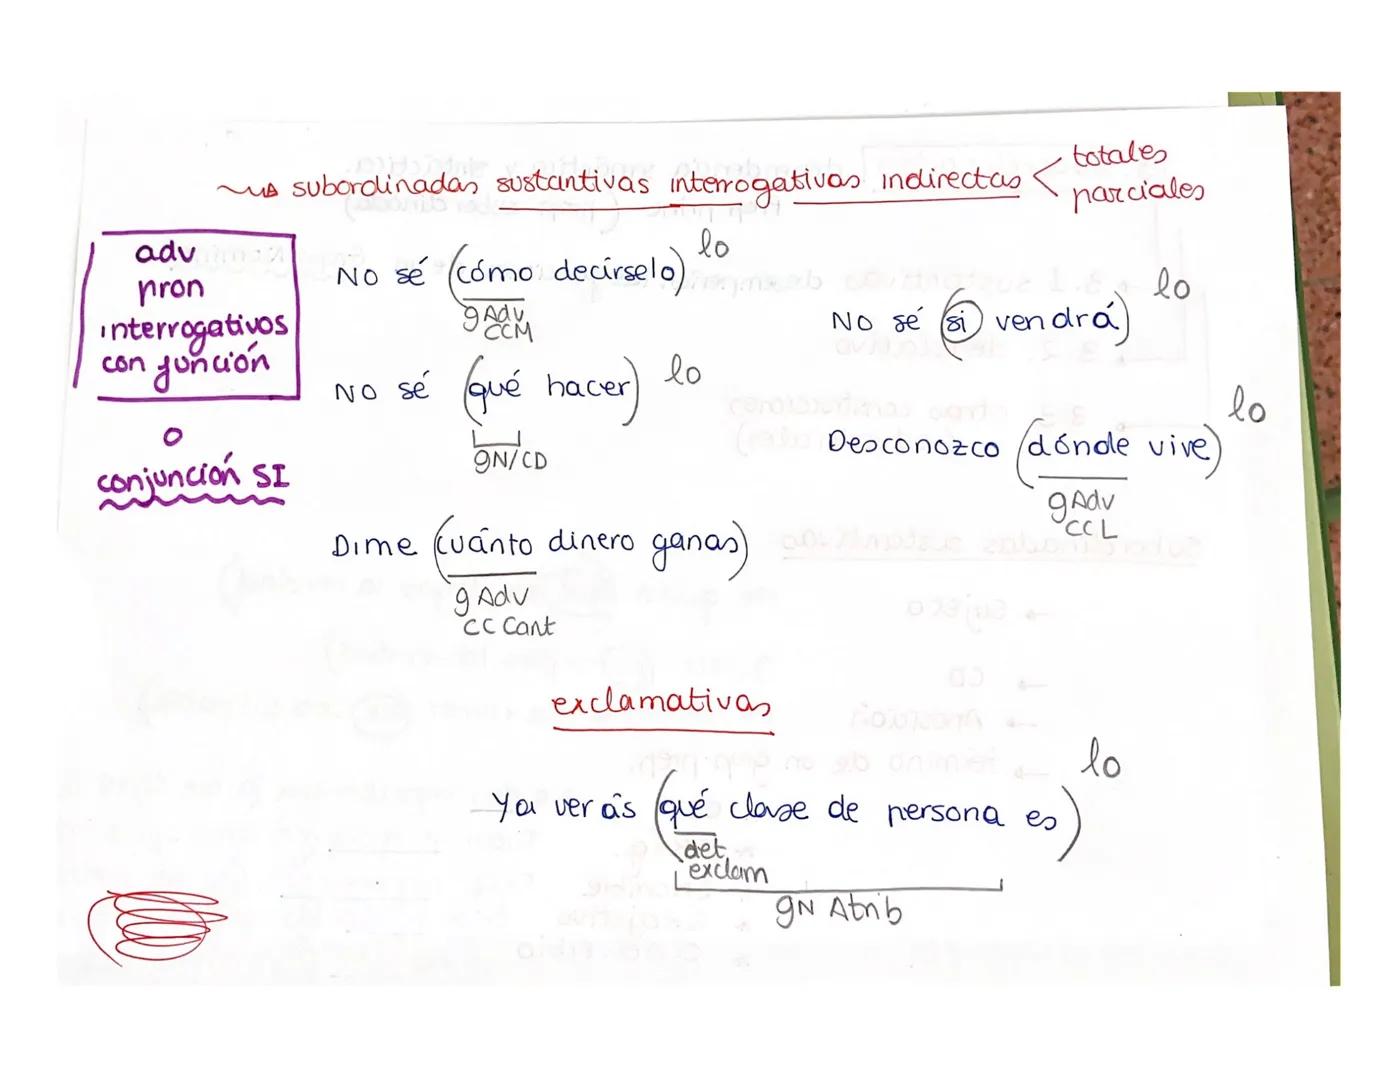 subordinadas sustantivas interrogativas indirectas < totales
parciales
adv
pron
interrogativos
con función
o
conjunción SI
No sé (cómo decírselo) lo
g Adv
CCM
No sé (qué hacer) lo
gN/CD
Dime (cuánto dinero ganas)
g Adv
CC Cant
No sé (si vendrá) lo
Desconozco (dónde vive) lo
g Adv
CCL
exclamativas
Ya verás (qué clase de persona es) lo
det
exclam
gN Atrib